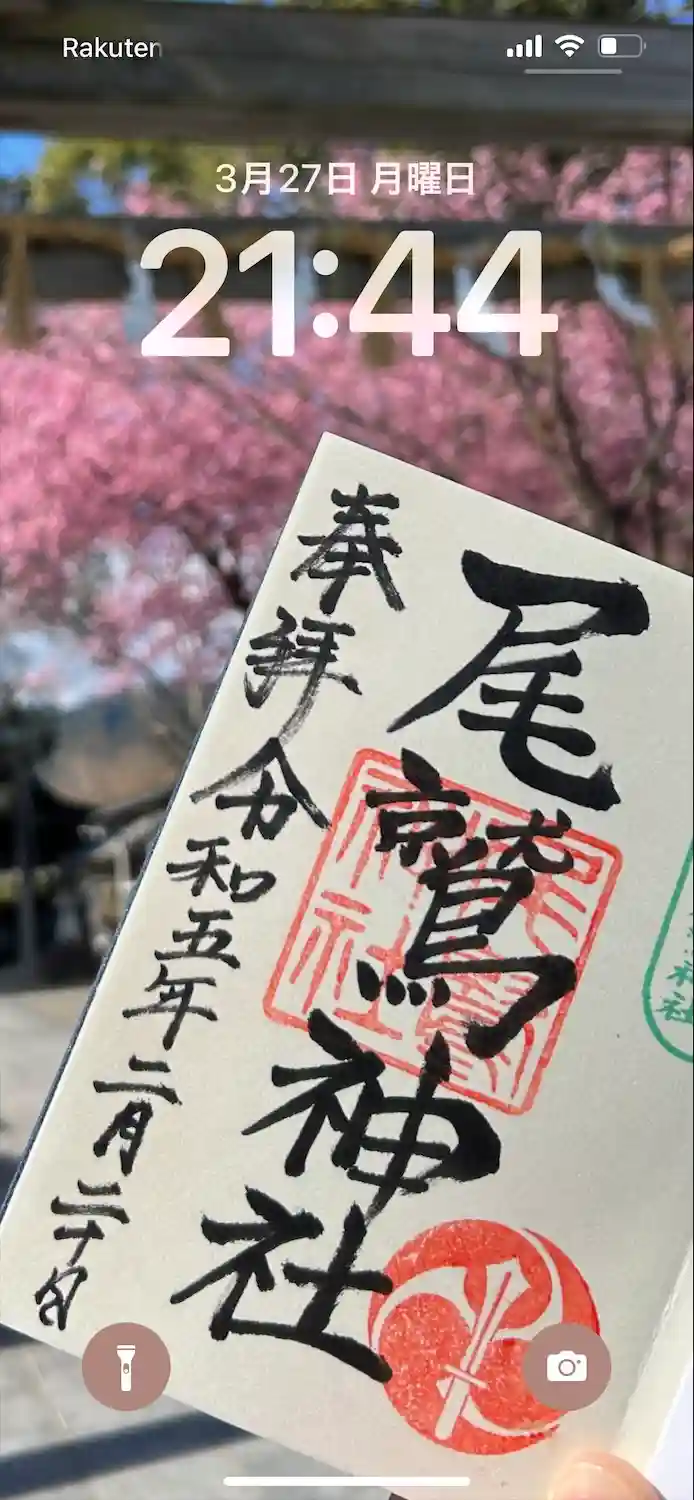 Rakuten
3月27日 月曜日
21:44
尾鷲神社
奉拝
令和五年二月二十日